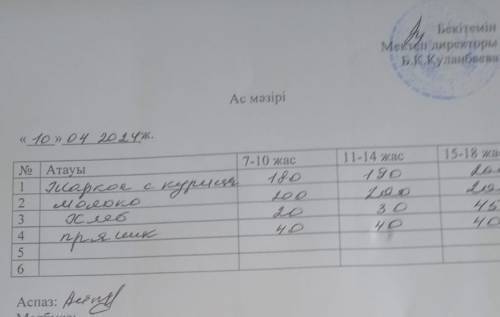 Бекітемін
Мектеп директоры
Б.К.Куланбаева
Ас мәзірі
« 10 » 04 2024ж.
№ Атауы 7-10 жас 11-14 жас 15-18 жас
1 Жаркое с курицей 180 190
2 молоко 200 200
3 Хлеб 20 30 45
4 пряник 40 40 40
5
6
Аспаз: